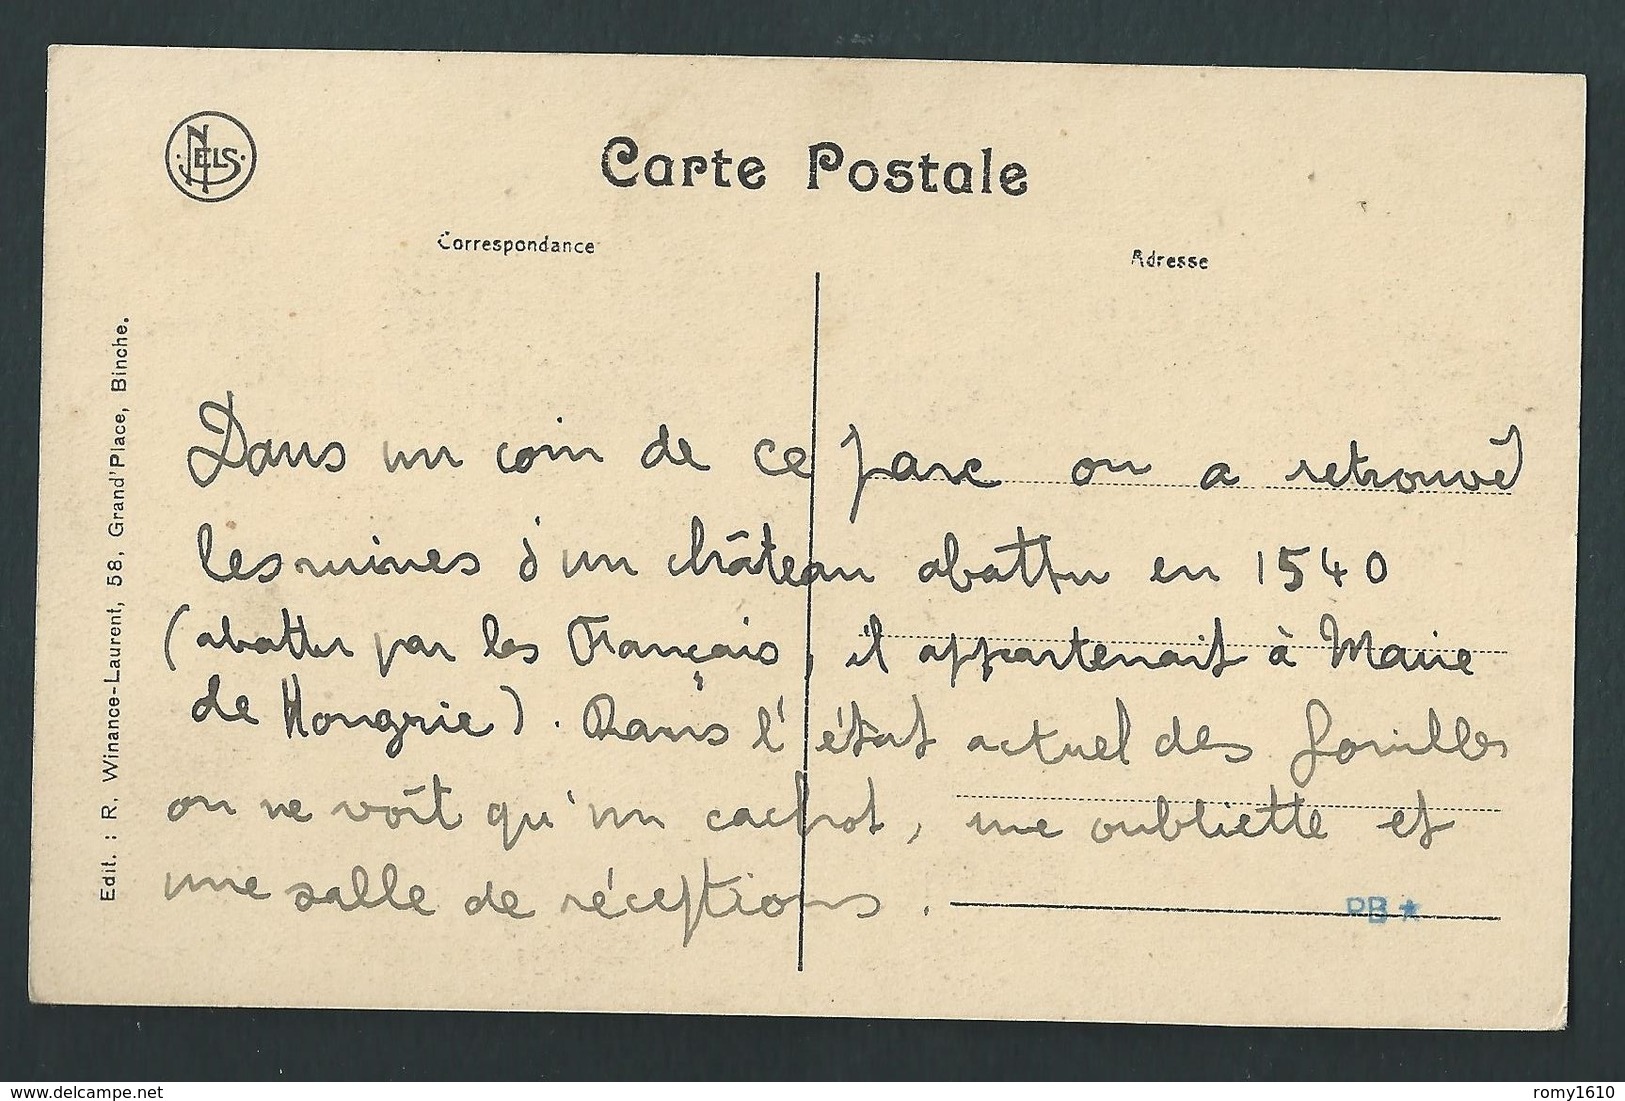 NELS
Carte Postale
Correspondance
Adresse
Edit. : R. Winance-Laurent, 58, Grand'Place, Binche.
Dans un coin de ce parc on a retrouvé
les ruines d'un château abattu en 1540
(abattu par les Français, il appartenait à Marie
de Hongrie). Dans l'état actuel des fouilles
on ne voit qu'un cachot, une oubliette et
une salle de réceptions.
PB★
delcampe.net
romy1610